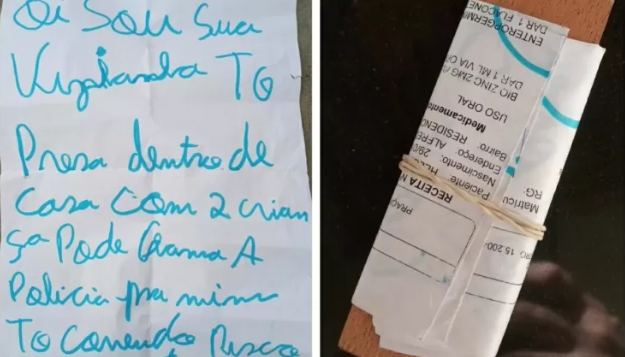 Oi Sou Sua
Vizianha TO
Presa dentro de
Casa Com 2 crian
ça Pode Chama A
Policia pra mim
To Correndo Risco
ENTEROPGERMI
DAR 1 FLACONE
BIO ZINC 2MG
DAR 1 ML VIA
USO ORAL
Medicamento
RESIDENC
Bairro:
Endereço: ALFRE
Nascimento: 29/0
Paciente: HE
RG:
Matrícu
RECEITA M
PRAÇ
15.200